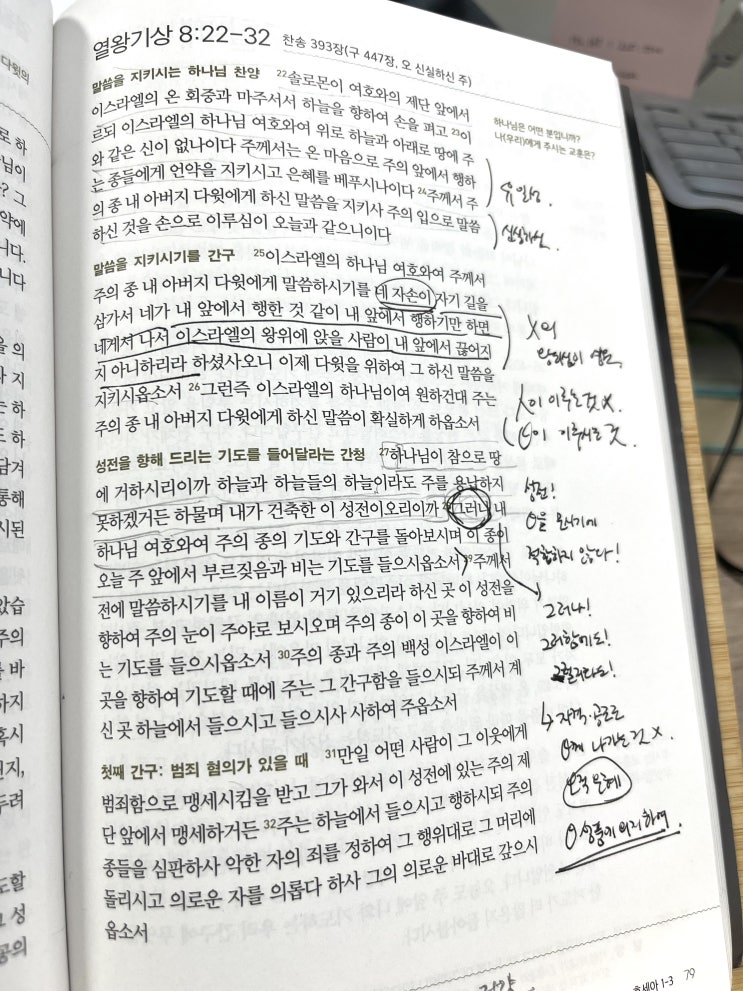 열왕기상 8:22-32 찬송 393장(구 447장, 오 신실하신 주)
말씀을 지키시는 하나님 찬양 22솔로몬이 여호와의 제단 앞에서
이스라엘의 온 회중과 마주서서 하늘을 향하여 손을 펴고 23이
르되 이스라엘의 하나님 여호와여 위로 하늘과 아래로 땅에 주
와 같은 신이 없나이다 주께서는 온 마음으로 주의 앞에서 행하
는 종들에게 언약을 지키시고 은혜를 베푸시나이다 24주께서 주
의 종 내 아버지 다윗에게 하신 말씀을 지키사 주의 입으로 말씀
하신 것을 손으로 이루심이 오늘과 같으니이다
말씀을 지키시기를 간구 25이스라엘의 하나님 여호와여 주께서
주의 종 내 아버지 다윗에게 말씀하시기를 네 자손이 자기 길을
삼가서 네가 내 앞에서 행한 것 같이 내 앞에서 행하기만 하면
네게서 나서 이스라엘의 왕위에 앉을 사람이 내 앞에서 끊어지
지 아니하리라 하셨사오니 이제 다윗을 위하여 그 하신 말씀을
지키시옵소서 26그런즉 이스라엘의 하나님이여 원하건대 주는
주의 종 내 아버지 다윗에게 하신 말씀이 확실하게 하옵소서
성전을 향해 드리는 기도를 들어달라는 간청 27하나님이 참으로 땅
에 거하시리이까 하늘과 하늘들의 하늘이라도 주를 용납하지
못하겠거든 하물며 내가 건축한 이 성전이오리이까 그러나 내
하나님 여호와여 주의 종의 기도와 간구를 돌아보시며 이 종이
오늘 주 앞에서 부르짖음과 비는 기도를 들으시옵소서 29주께서
전에 말씀하시기를 내 이름이 거기 있으리라 하신 곳 이 성전을
향하여 주의 눈이 주야로 보시오며 주의 종이 이 곳을 향하여 비
는 기도를 들으시옵소서 30주의 종과 주의 백성 이스라엘이 이
곳을 향하여 기도할 때에 주는 그 간구함을 들으시되 주께서 계
신 곳 하늘에서 들으시고 들으시사 사하여 주옵소서
첫째 간구: 범죄 혐의가 있을 때 31만일 어떤 사람이 그 이웃에게
범죄함으로 맹세시킴을 받고 그가 와서 이 성전에 있는 주의 제
단 앞에서 맹세하거든 32주는 하늘에서 들으시고 행하시되 주의
종들을 심판하사 악한 자의 죄를 정하여 그 행위대로 그 머리에
돌리시고 의로운 자를 의롭다 하사 그의 의로운 바대로 갚으시
옵소서
하나님은 어떤 분입니까?
나(우리)에게 주시는 교훈은?
유일성.
신실하심.
이 이루는 것 X.
이 이루시는 것.
성전!
을 모시기에
적합하지 않다!
그러나!
그러함에도!
그럴지라도!
↳ 자격·공로로
께 나가는 것 X.
오직 은혜
의지하여.
호세아 1-3 79